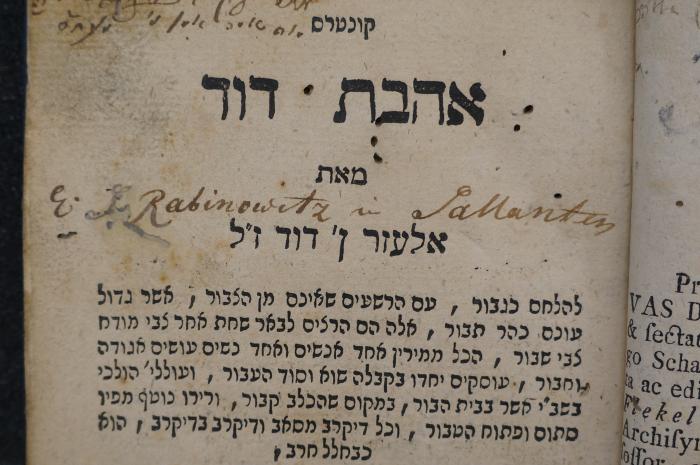 קונטרס
אהבת דוד
מאת
E. L. Rabinowitz in Sallanten
אלעזר ן' דוד ז"ל
להלחם כגבור , עם הרשעים שאינם מן הצבור , אשר גדול
עונם כהר תבור , אלה הם הרצים לבאר שחת אחר צבי מודח
צבי שבור , הכל ממירין אחד אנשים ואחד נשים עושים אגודה
וחבור , עוסקים יחדו בקבלה שוא וסוד העבור , ועוללי' הולכי
בשב"י אשר בבית הבור , במקום שהכלב קבור , ורירו נוטף מפיו
סתום ופתוח הטבור , וכל דיקרב מסאב ודיקרב בדיקרב , הוא
כבחלל חרב ,
Pr
VAS D
& sectat
go Scha
ta ac edi
Flekel
Archisyn